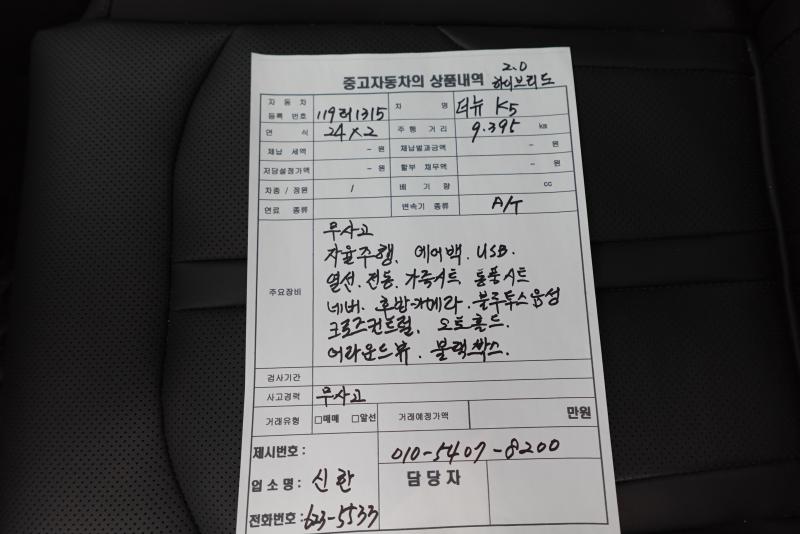 중고자동차의 상품내역 2.0 하이브리드
자동차 등록번호 119허1315 차명 더뉴 K5
연식 24×2 주행거리 9.395 km
체납 세액 - 원 체납벌과금액 - 원
저당설정가액 - 원 할부 채무액 - 원
차종 / 정원 / 배기량 cc
연료 종류 변속기 종류 A/T
주요장비
무사고
자율주행. 에어백. USB.
열선. 전동. 가죽시트 통풍시트
네비. 후방카메라. 블루투스음성
크로즈컨트럴. 오토홀드.
어라운드뷰. 블랙박스.
검사기간
사고경력 무사고
거래유형 □매매 □알선 거래예정가액 만원
제시번호 : 010-5407-8200
업소명 : 신한 담당자
전화번호 : 623-5533